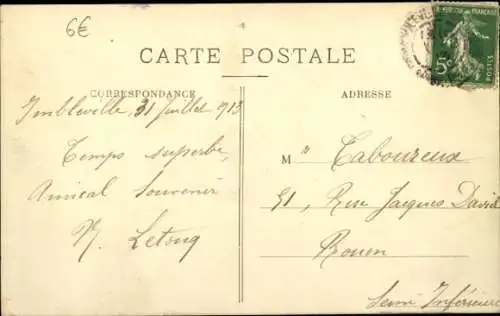 6€
CARTE POSTALE
CORRESPONDANCE
ADRESSE
5c
POSTES
Imbleville, 31 Juillet 1913
Temps superbe,
Amical Souvenir
M Taboureux
51, Rue Jacques David
Rouen
Seine Inférieure